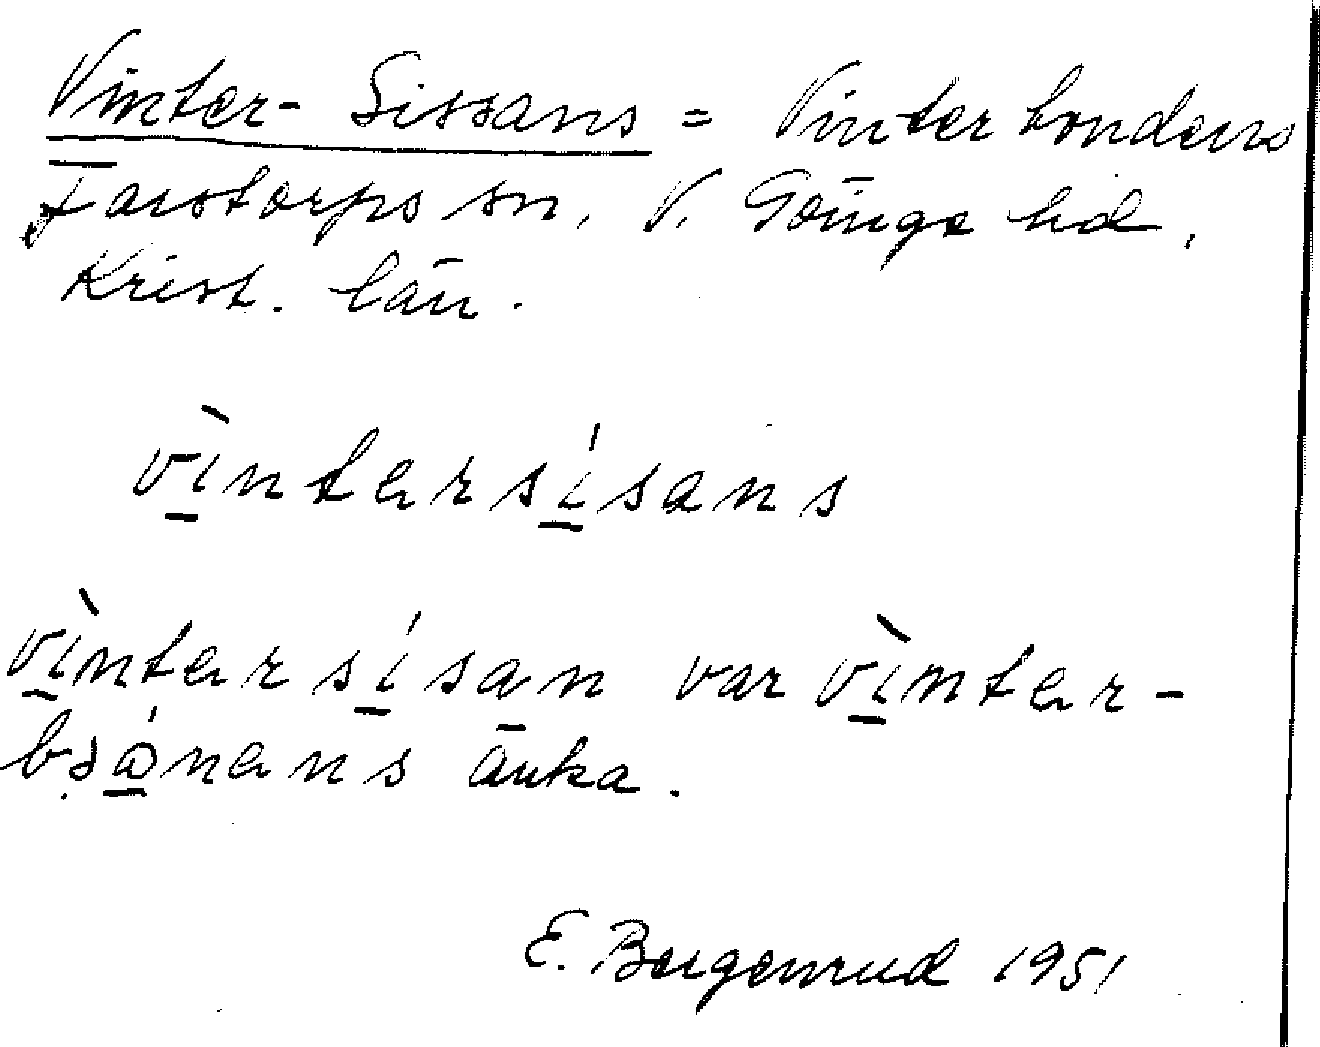 Vinter-Sissans = Vinterbondens
Farstorps sn, V. Göinge hd,
Krist. län.
vìntersísans
vìntersísan var vìnter-
bónans änka.
E. Bergenrud 1951